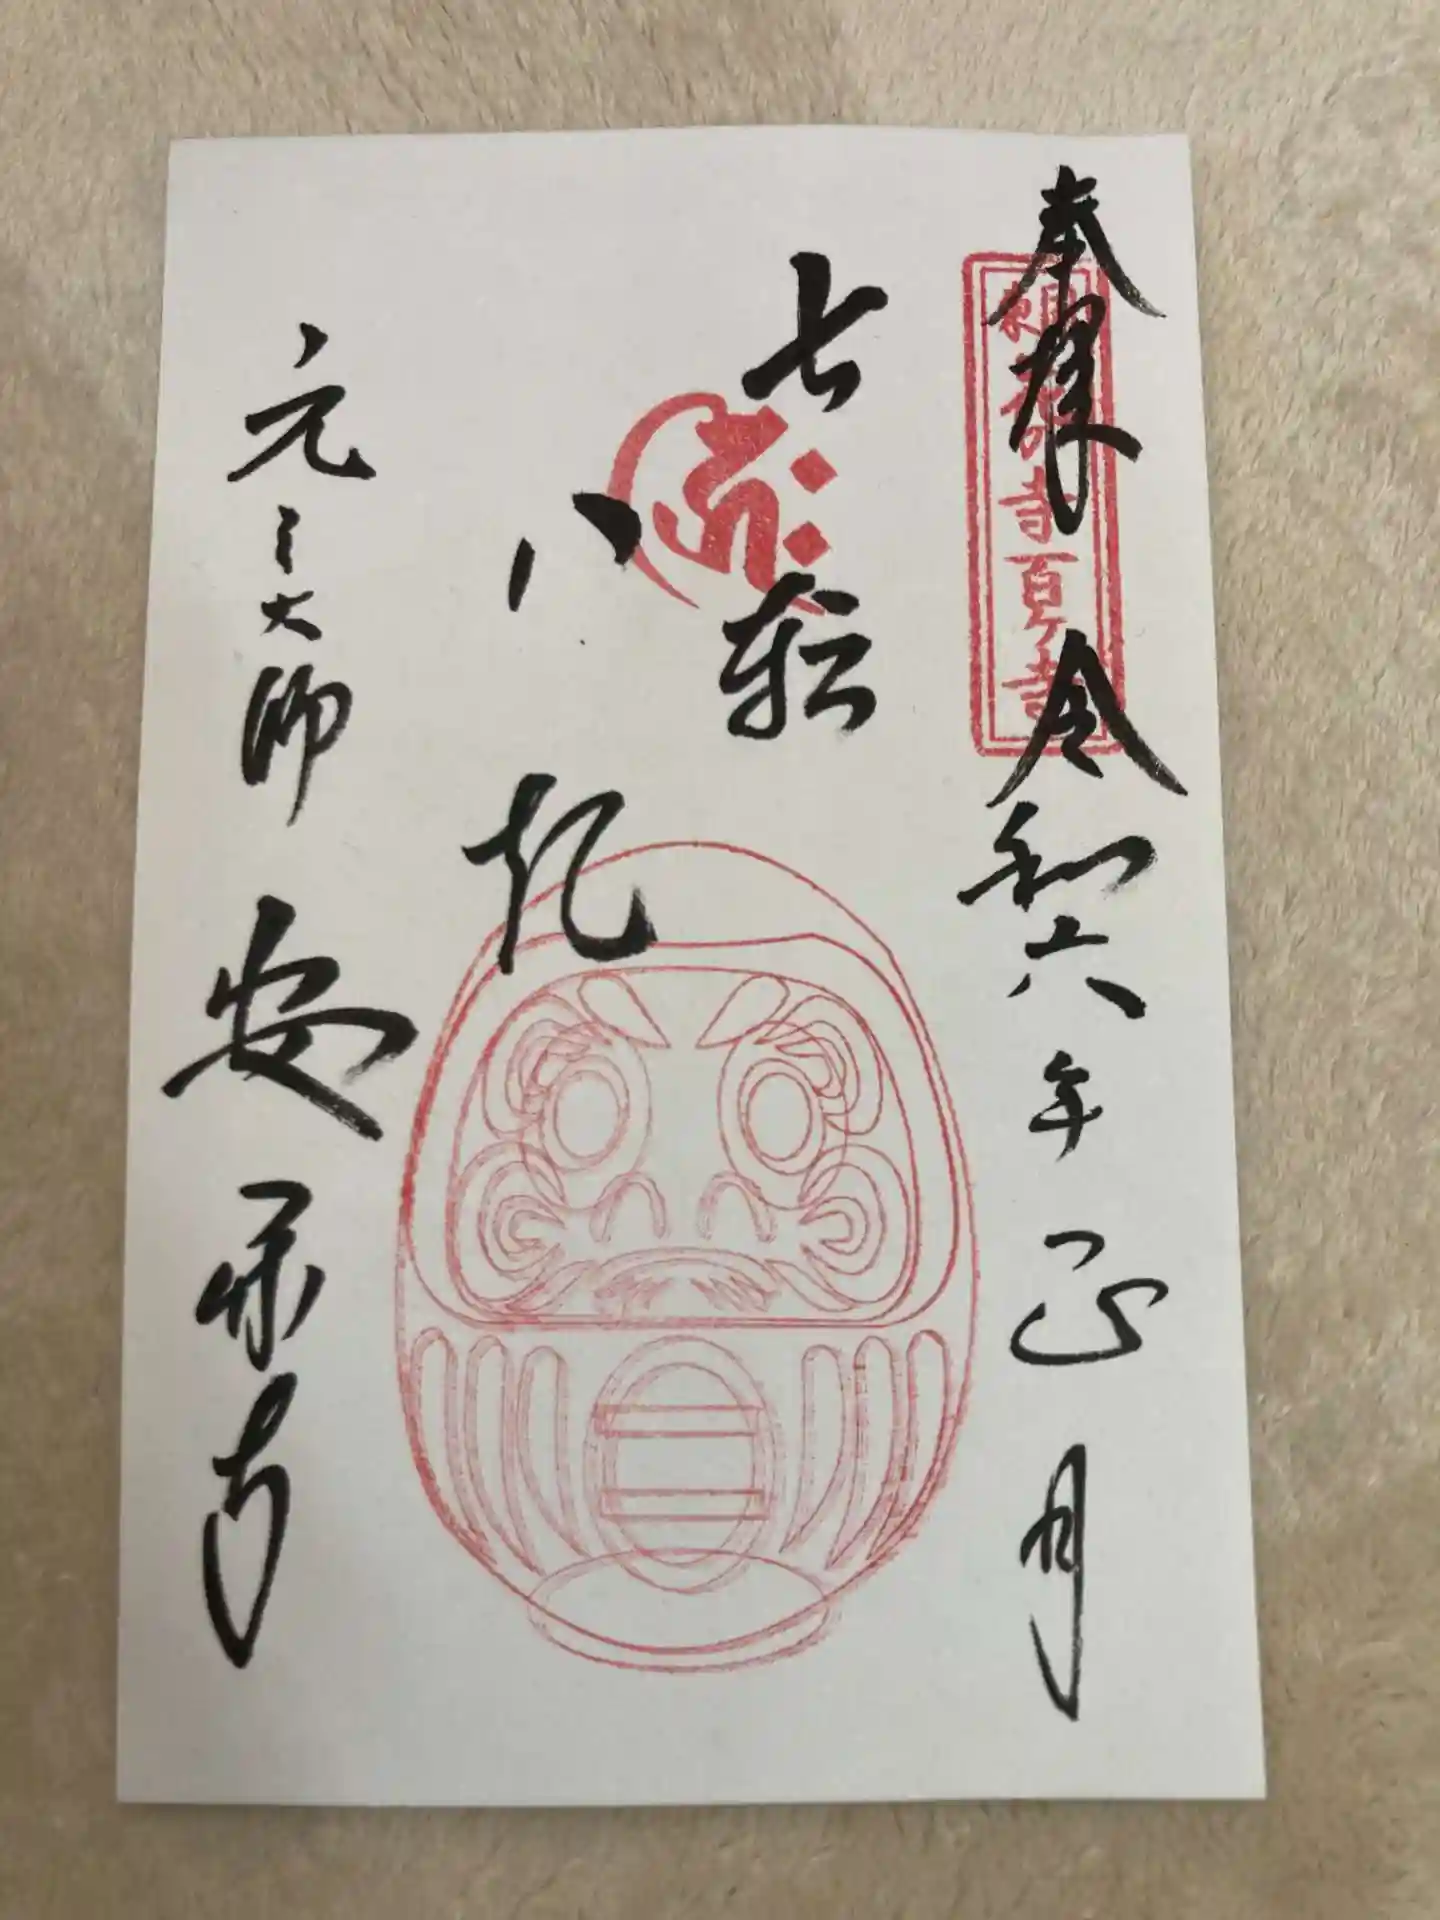 奉拝 令和六年正月
東国花の寺百ヶ寺
七転
八起
元三大師 安楽寺